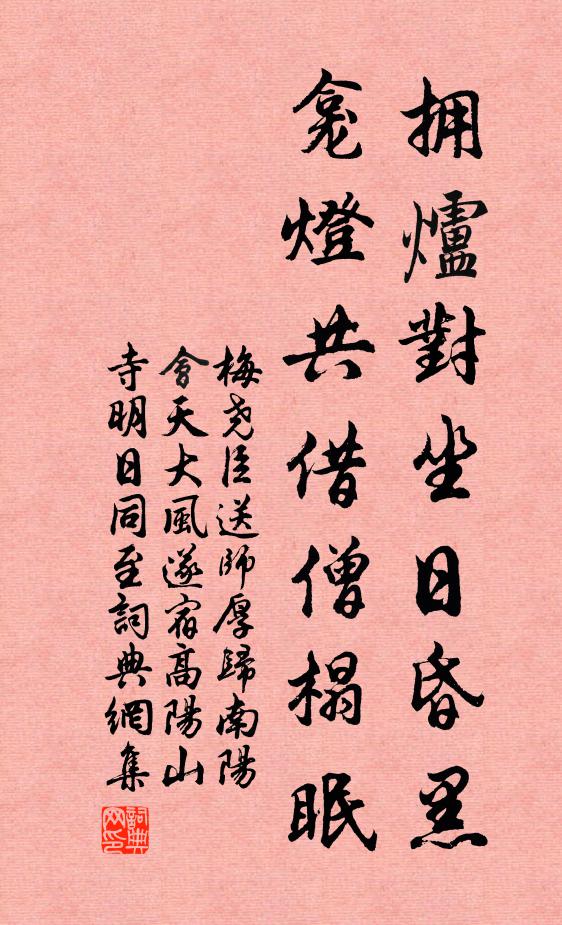 拥爐對坐日昏黑
龛燈共借僧榻眠
梅尧臣送師厚歸南陽
會天大風遂宿高陽山
寺明日同至詞典網集
詞典
网印